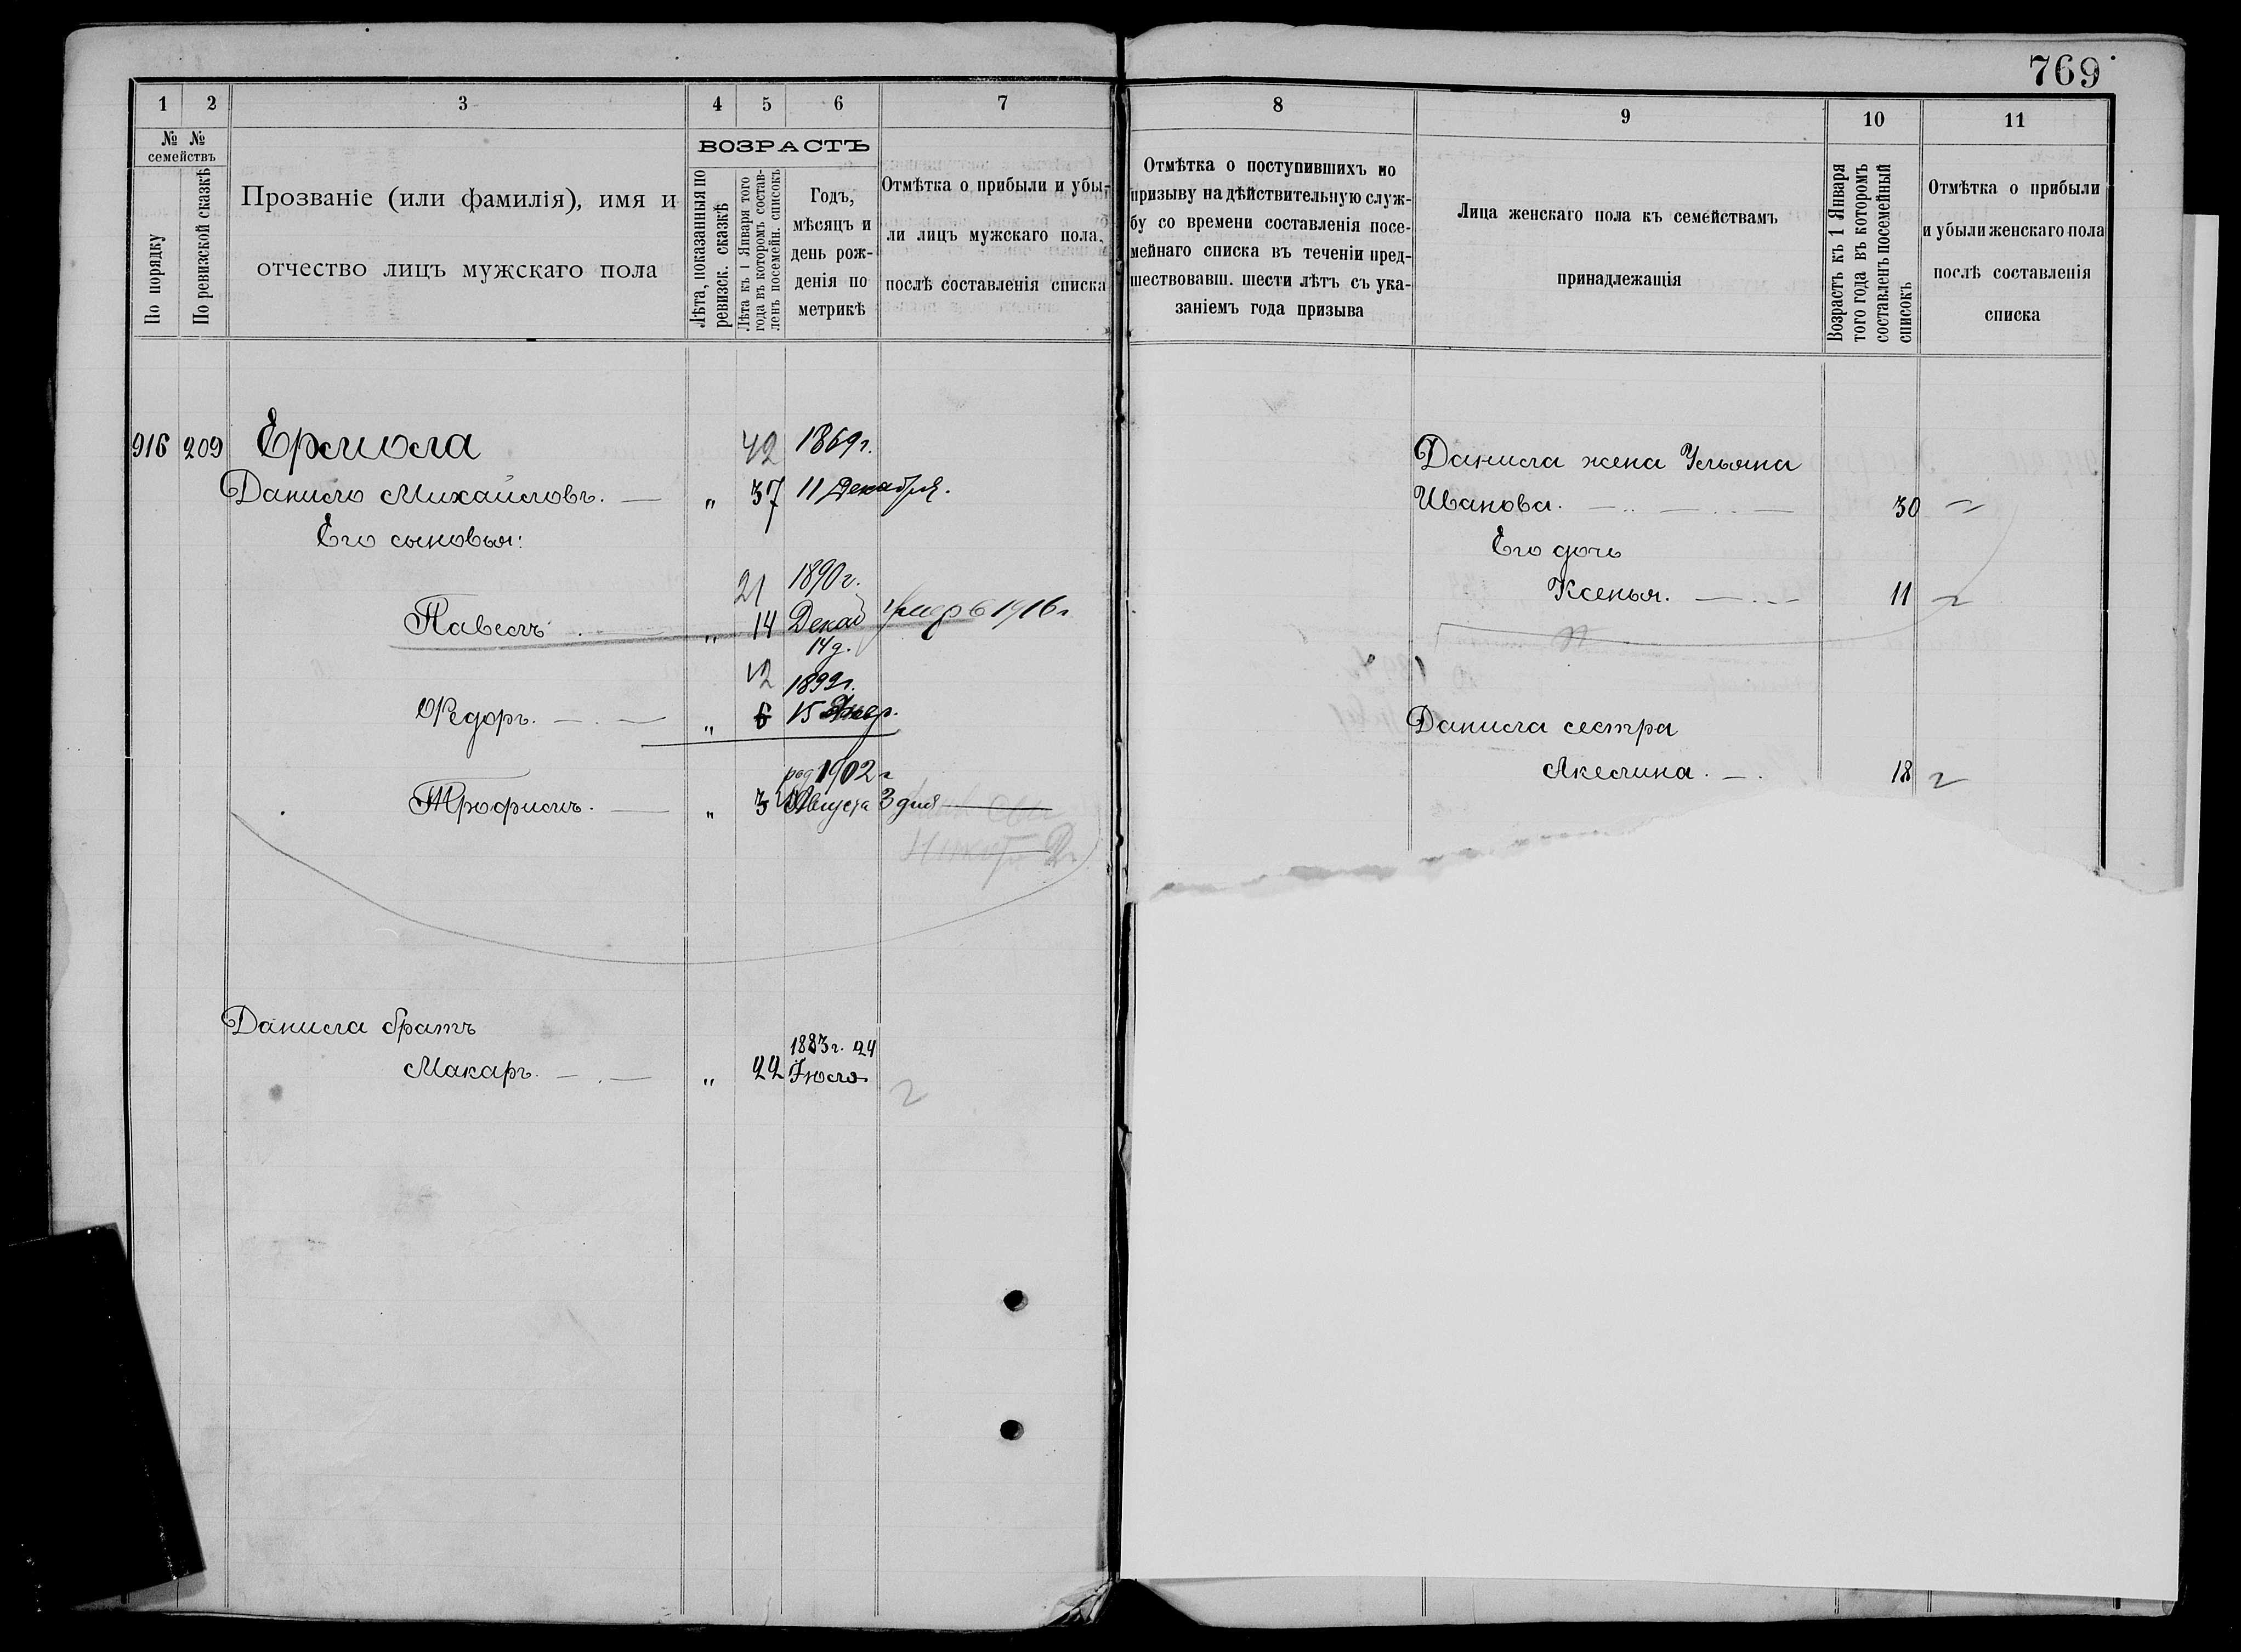 769
1 2 3 4 5 6 7
№ № семействъ
По порядку
По ревизской сказкѣ
Прозваніе (или фамилія), имя и
отчество лицъ мужскаго пола
ВОЗРАСТЪ
Лѣта, показанныя по
ревизск. сказкѣ
Лѣта къ 1 Января того
года въ которомъ состав-
ленъ посемейн. списокъ
Годъ,
мѣсяцъ и
день рож-
денія по
метрикѣ
Отмѣтка о прибыли и убы-
ли лицъ мужскаго пола,
послѣ составленія списка
916 209 Ермола 42 1869 г.
Данило Михайловъ. — „ 37 11 Декабря.
Его сыновья:
21 1890 г.
Павелъ „ 14 Декаб 1916 г
14 д.
12 1899 г.
Ѳедоръ. — . — „ 6 15
род 1902 г
Трофимъ. — „ 3 Августа 3 дня
Данила братъ
1883 г. 24
Макаръ. — . — „ 22 Іюля
8 9 10 11
Отмѣтка о поступившихъ по
призыву на дѣйствительную служ-
бу со времени составленія посе-
мейнаго списка въ теченіи пред-
шествовавш. шести лѣтъ съ ука-
заніемъ года призыва
Лица женскаго пола къ семействамъ
принадлежащія
Возрастъ къ 1 Января
того года въ которомъ
составленъ посемейный
списокъ
Отмѣтка о прибыли
и убыли женскаго пола
послѣ составленія
списка
Данила жена Ульяна
Иванова. 30
Его дочь
Ксенья. 11
Данила сестра
Акелина. — . 18